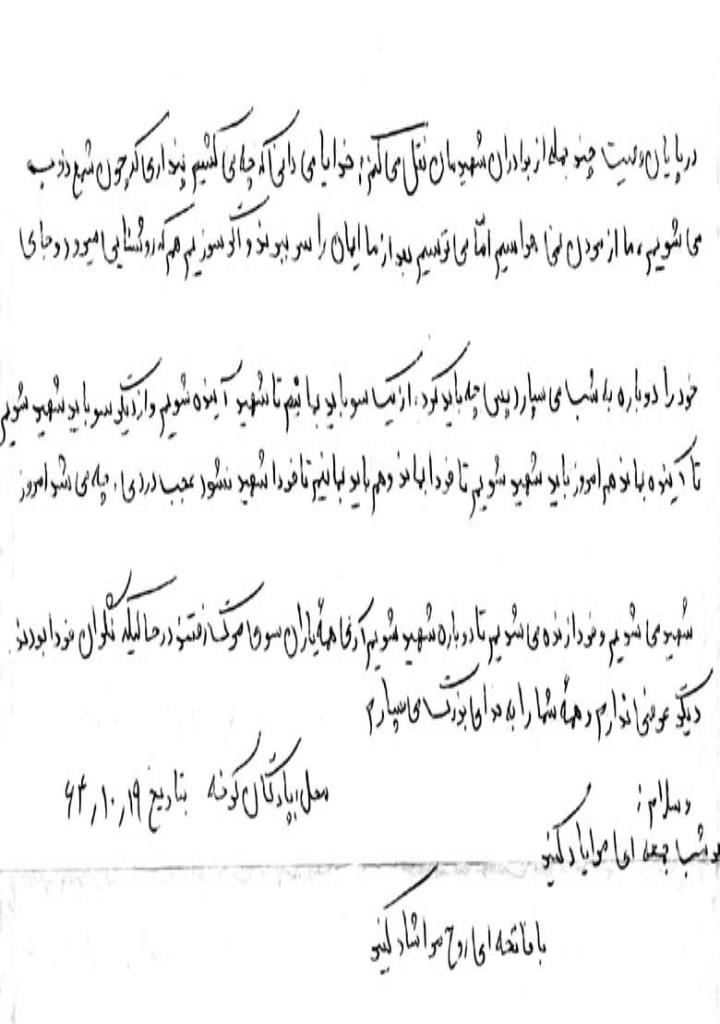 در پایان وصیت چند جمله از برادران شهیدمان نقل می‌کنم: خدایا می دانی که چه می کشیم پنداری که چون شمع ذوب
می شویم، ما از مردن نمی هراسیم امّا می ترسیم بعد از ما ایمان را سر ببرند و اگر سوزیم هم که روشنایی میرود و جای
خود را دوباره به شب می سپارد پس چه باید کرد، از یک سو باید بمانیم تا شهید آینده شویم و از دیگر سو باید شهید شویم
تا آینده بماند هم امروز باید شهید شویم تا فردا بماند و هم باید بمانیم تا فردا شهید نشود عجب دردی، چه می شد امروز
شهید می شویم و فردا زنده می شویم تا دوباره شهید شویم آری همهٔ یاران سوی مرگ رفتند در حالیکه نگران فردا بودند
دیگر عرضی ندارم و همهٔ شما را به خدای بزرگ می سپارم
والسلام:
محل، پادگان کوفه بتاریخ ۶۴,۱۰,۱۹
هر شب جمعه ای مرا یاد کنید
با فاتحه ای روح مرا شاد کنید